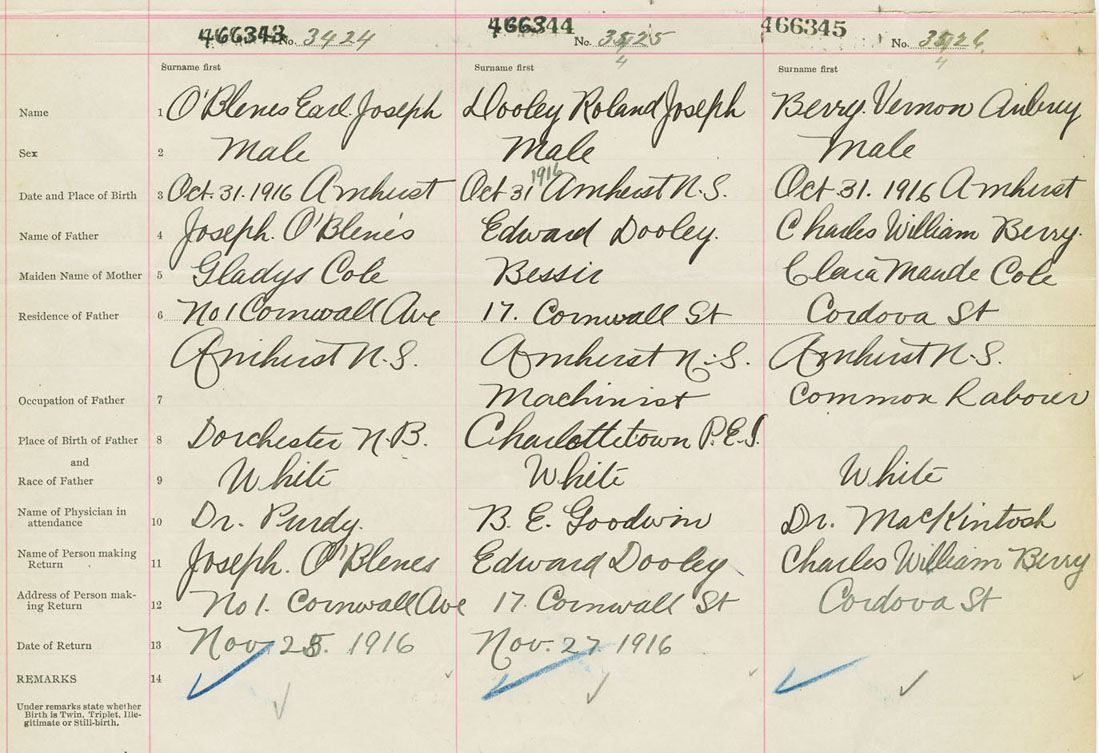 466343 No. 3424 466344 No. 3525 466345 No. 3526
4 4
Surname first Surname first Surname first
Name 1 O'Blenes Earl Joseph Dooley Roland Joseph Berry. Vernon Aubrey
Sex 2 Male Male Male
1916
Date and Place of Birth 3 Oct. 31. 1916 Amherst Oct 31 Amherst N.S. Oct. 31. 1916 Amherst
Name of Father 4 Joseph. O'Blenes Edward Dooley. Charles William Berry.
Maiden Name of Mother 5 Gladys Cole Bessie Clara Maude Cole
Residence of Father 6 No 1 Cornwall Ave 17. Cornwall St Cordova St
Amherst N.S. Amherst N.S. Amherst N.S.
Occupation of Father 7 Machinist Common Labourer
Place of Birth of Father 8 Dorchester N.B. Charlottetown P.E.I.
and
Race of Father 9 White White White
Name of Physician in
attendance 10 Dr. Purdy. B. E. Goodwin Dr. MacKintosh
Name of Person making
Return 11 Joseph. O'Blenes Edward Dooley Charles William Berry
Address of Person mak-
ing Return 12 No 1. Cornwall Ave 17. Cornwall St Cordova St
Date of Return 13 Nov. 25. 1916 Nov. 27 1916
REMARKS 14
Under remarks state whether
Birth is Twin, Triplet, Ille-
gitimate or Still-birth.